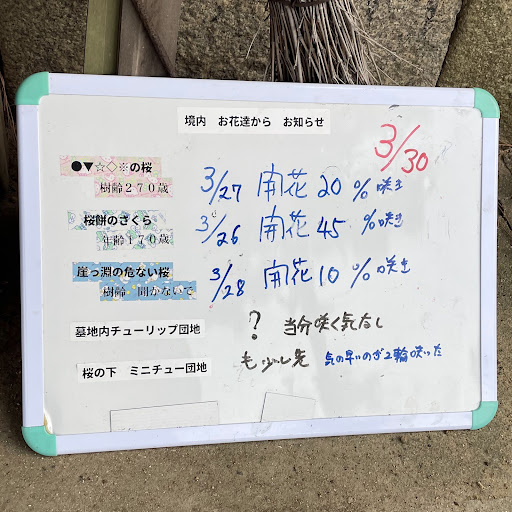 境内 お花達から お知らせ
3/30
●▼☆◇※の桜
樹齢270歳
3/27 開花 20 %咲き
桜餅のさくら
年齢170歳
3/26 開花 45 %咲き
崖っ淵の危ない桜
樹齢 聞かないで
3/28 開花 10 %咲き
墓地内チューリップ団地
? 当分咲く気なし
桜の下 ミニチュー団地
も少し先 気の早いのが2輪咲いた